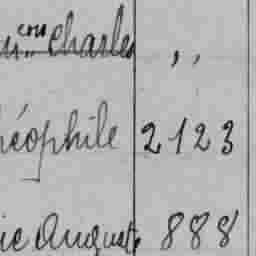 Charles ,,
héophile 2123
ie Auguste 888